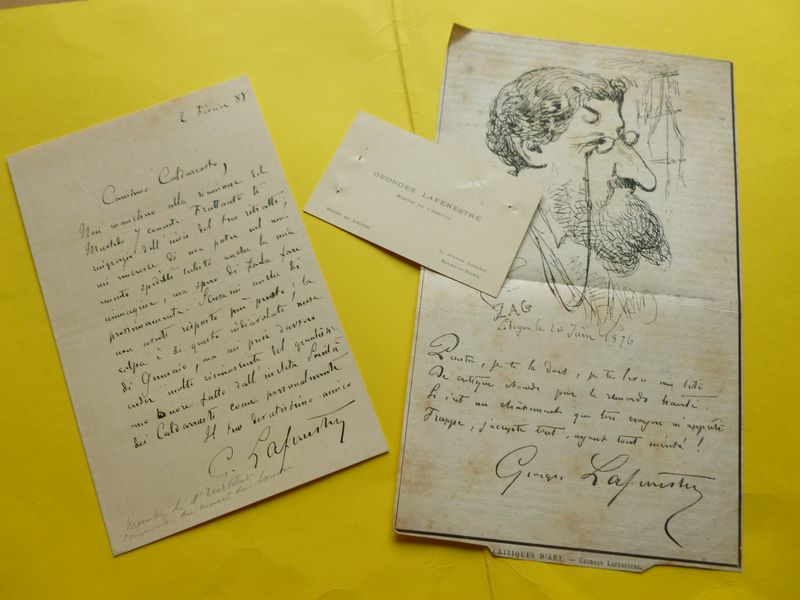 2 Février 88
Carissimo Caldarrosto,
Non mancherò alla riunione del
Martedi, y conta. Frattanto ti
ringrazio dell' invio del tuo ritratto;
mi rincresce di non poter nel mo-
mento spedirti subito anche la mia
immagine, ma spero di farla fare
prossimamente. Scusami anche di
non averti risposto più presto; la
colpa è di questo indiavolato mese
di Gennaio, ma mi preji davvero
molto riconoscente del grandissi-
mo onore fatto dall' inclita Società
dei Caldarrosti come personalmente
Il tuo devotissimo amico
G. Lafenestre
Membre de l'Institut
conservateur du musée du Louvre
GEORGES LAFENESTRE
MEMBRE DE L'INSTITUT
MUSÉE DU LOUVRE
5, AVENUE LAKANAL
BOURG-LA-REINE
ZAG
le 20 Juin 1876
Peintre, je te la dois, je te livre ma tête
De critique endurci par le remords hanté.
Si c'est un châtiment que ton crayon m'apprête
Frappe, j'accepte tout, ayant tout mérité !
Georges Lafenestre
CRITIQUES D'ART. — GEORGES LAFENESTRE.